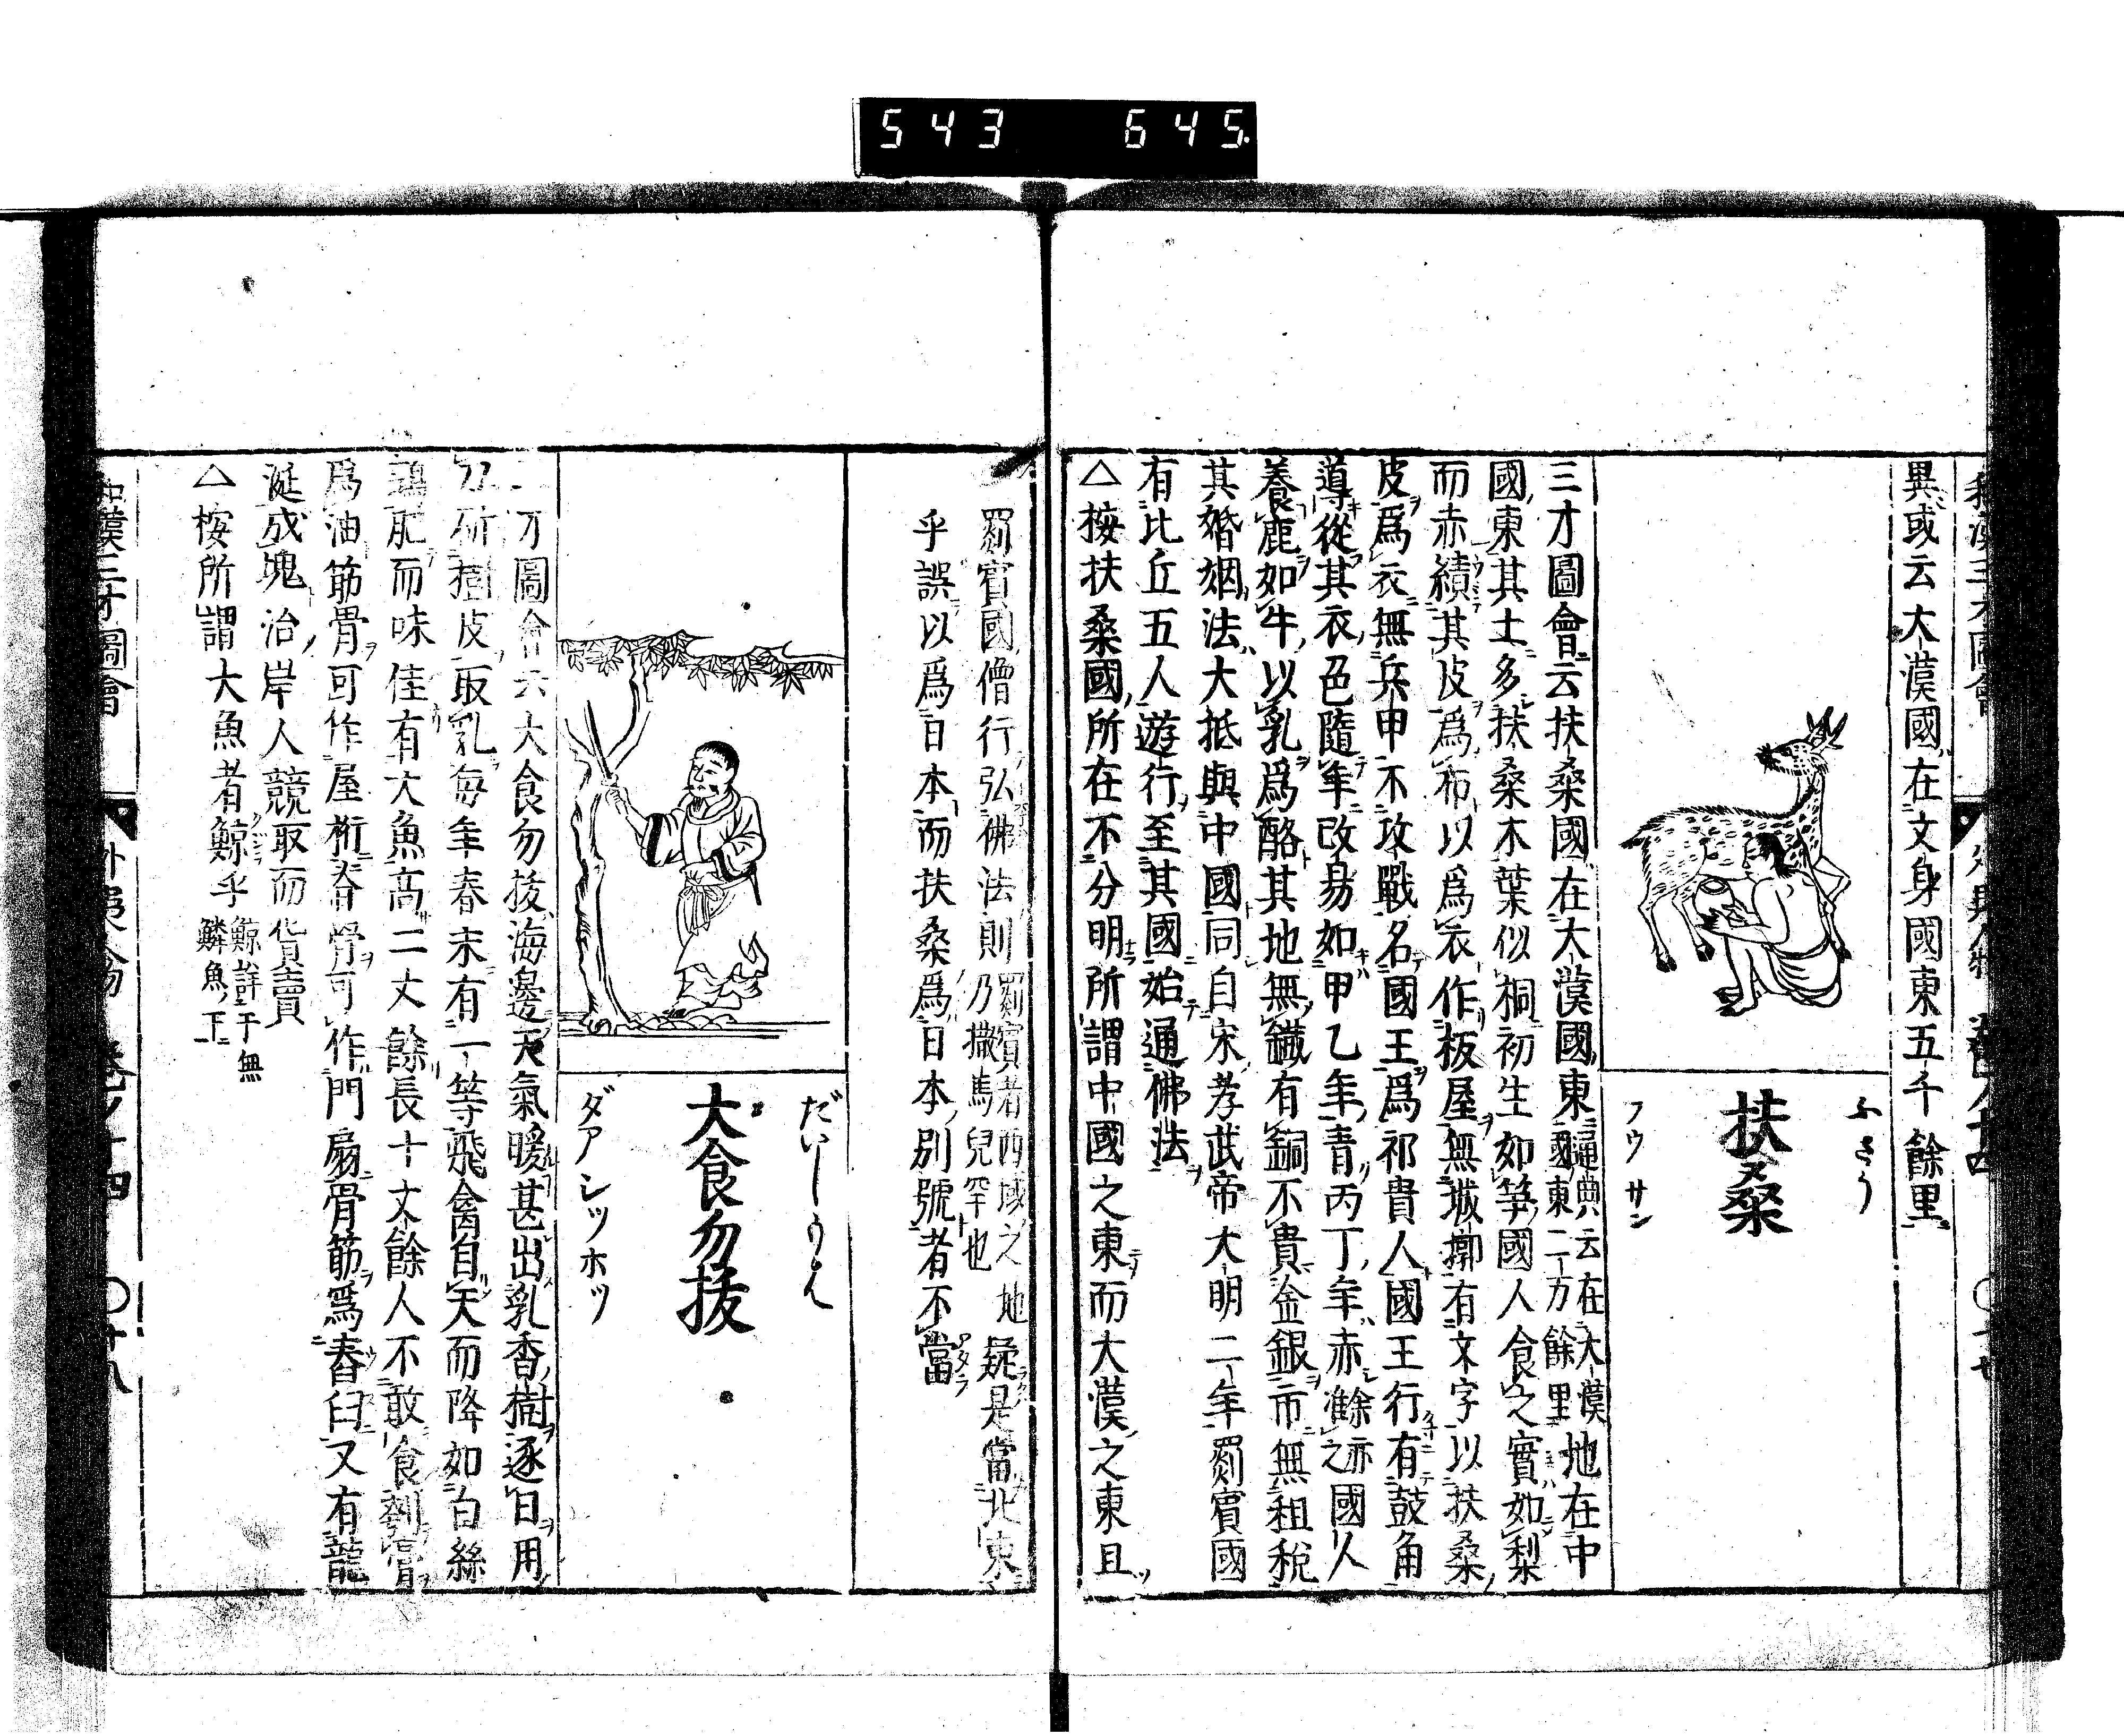 543 645.
異或云大漢國在文身國東五千餘里
ふさう
扶桑
フウサン
三才圖會云扶桑國在大漢國東 通典云在大漢國東二万餘里 地在中
國東其土多扶桑木葉似桐初生如笋國人食之實如梨
而赤績其皮爲布以爲衣作板屋無城廓有文字以扶桑
皮爲衣無兵甲不攻戰名國王爲祁貴人國王行有鼓角
導從其衣色隨年改易如甲乙年青丙丁年赤餘准之亦國人
養鹿如牛以乳爲酪其地無鐵有銅不貴金銀市無租税
其婚姻法大抵與中國同自宋孝武帝大明二年罽賓國
有比丘五人遊行至其國始通佛法
△按扶桑國所在不分明所謂中國之東而大漢之東且
罽賓國僧行弘佛法則 罽賓者西域之地乃撒馬兒罕也 疑是當北東
乎誤以爲日本而扶桑爲日本別號者不當
大食勿拔
ダアシツホツ
三才圖會云大食勿拔海邊天氣暖甚出乳香樹逐日用
刀斫樹皮取乳每年春末有一等飛禽自天而降如白絲
鷄肥而味佳有大魚高二丈餘長十丈餘人不敢食刳膏
爲油筋骨可作屋桁脊骨可作門扇骨筋爲舂臼又有龍
涎成塊泊岸人競取而貨賣
△按所謂大魚者鯨乎 鯨詳于無鱗魚下
和漢三才圖會